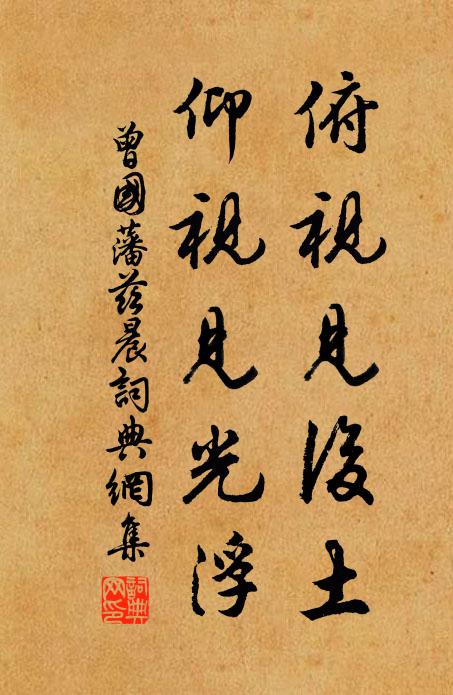 俯視見後土
仰視見光浮
曾國藩茲晨詞典網集
詞典網印